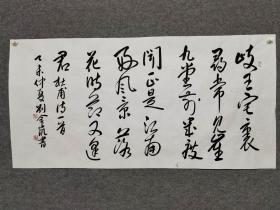 岐王宅裏
尋常見崔
九堂前幾度
聞正是江南
好風景落
花時節又逢
君杜甫詩一首
乙未仲夏劉金凱書